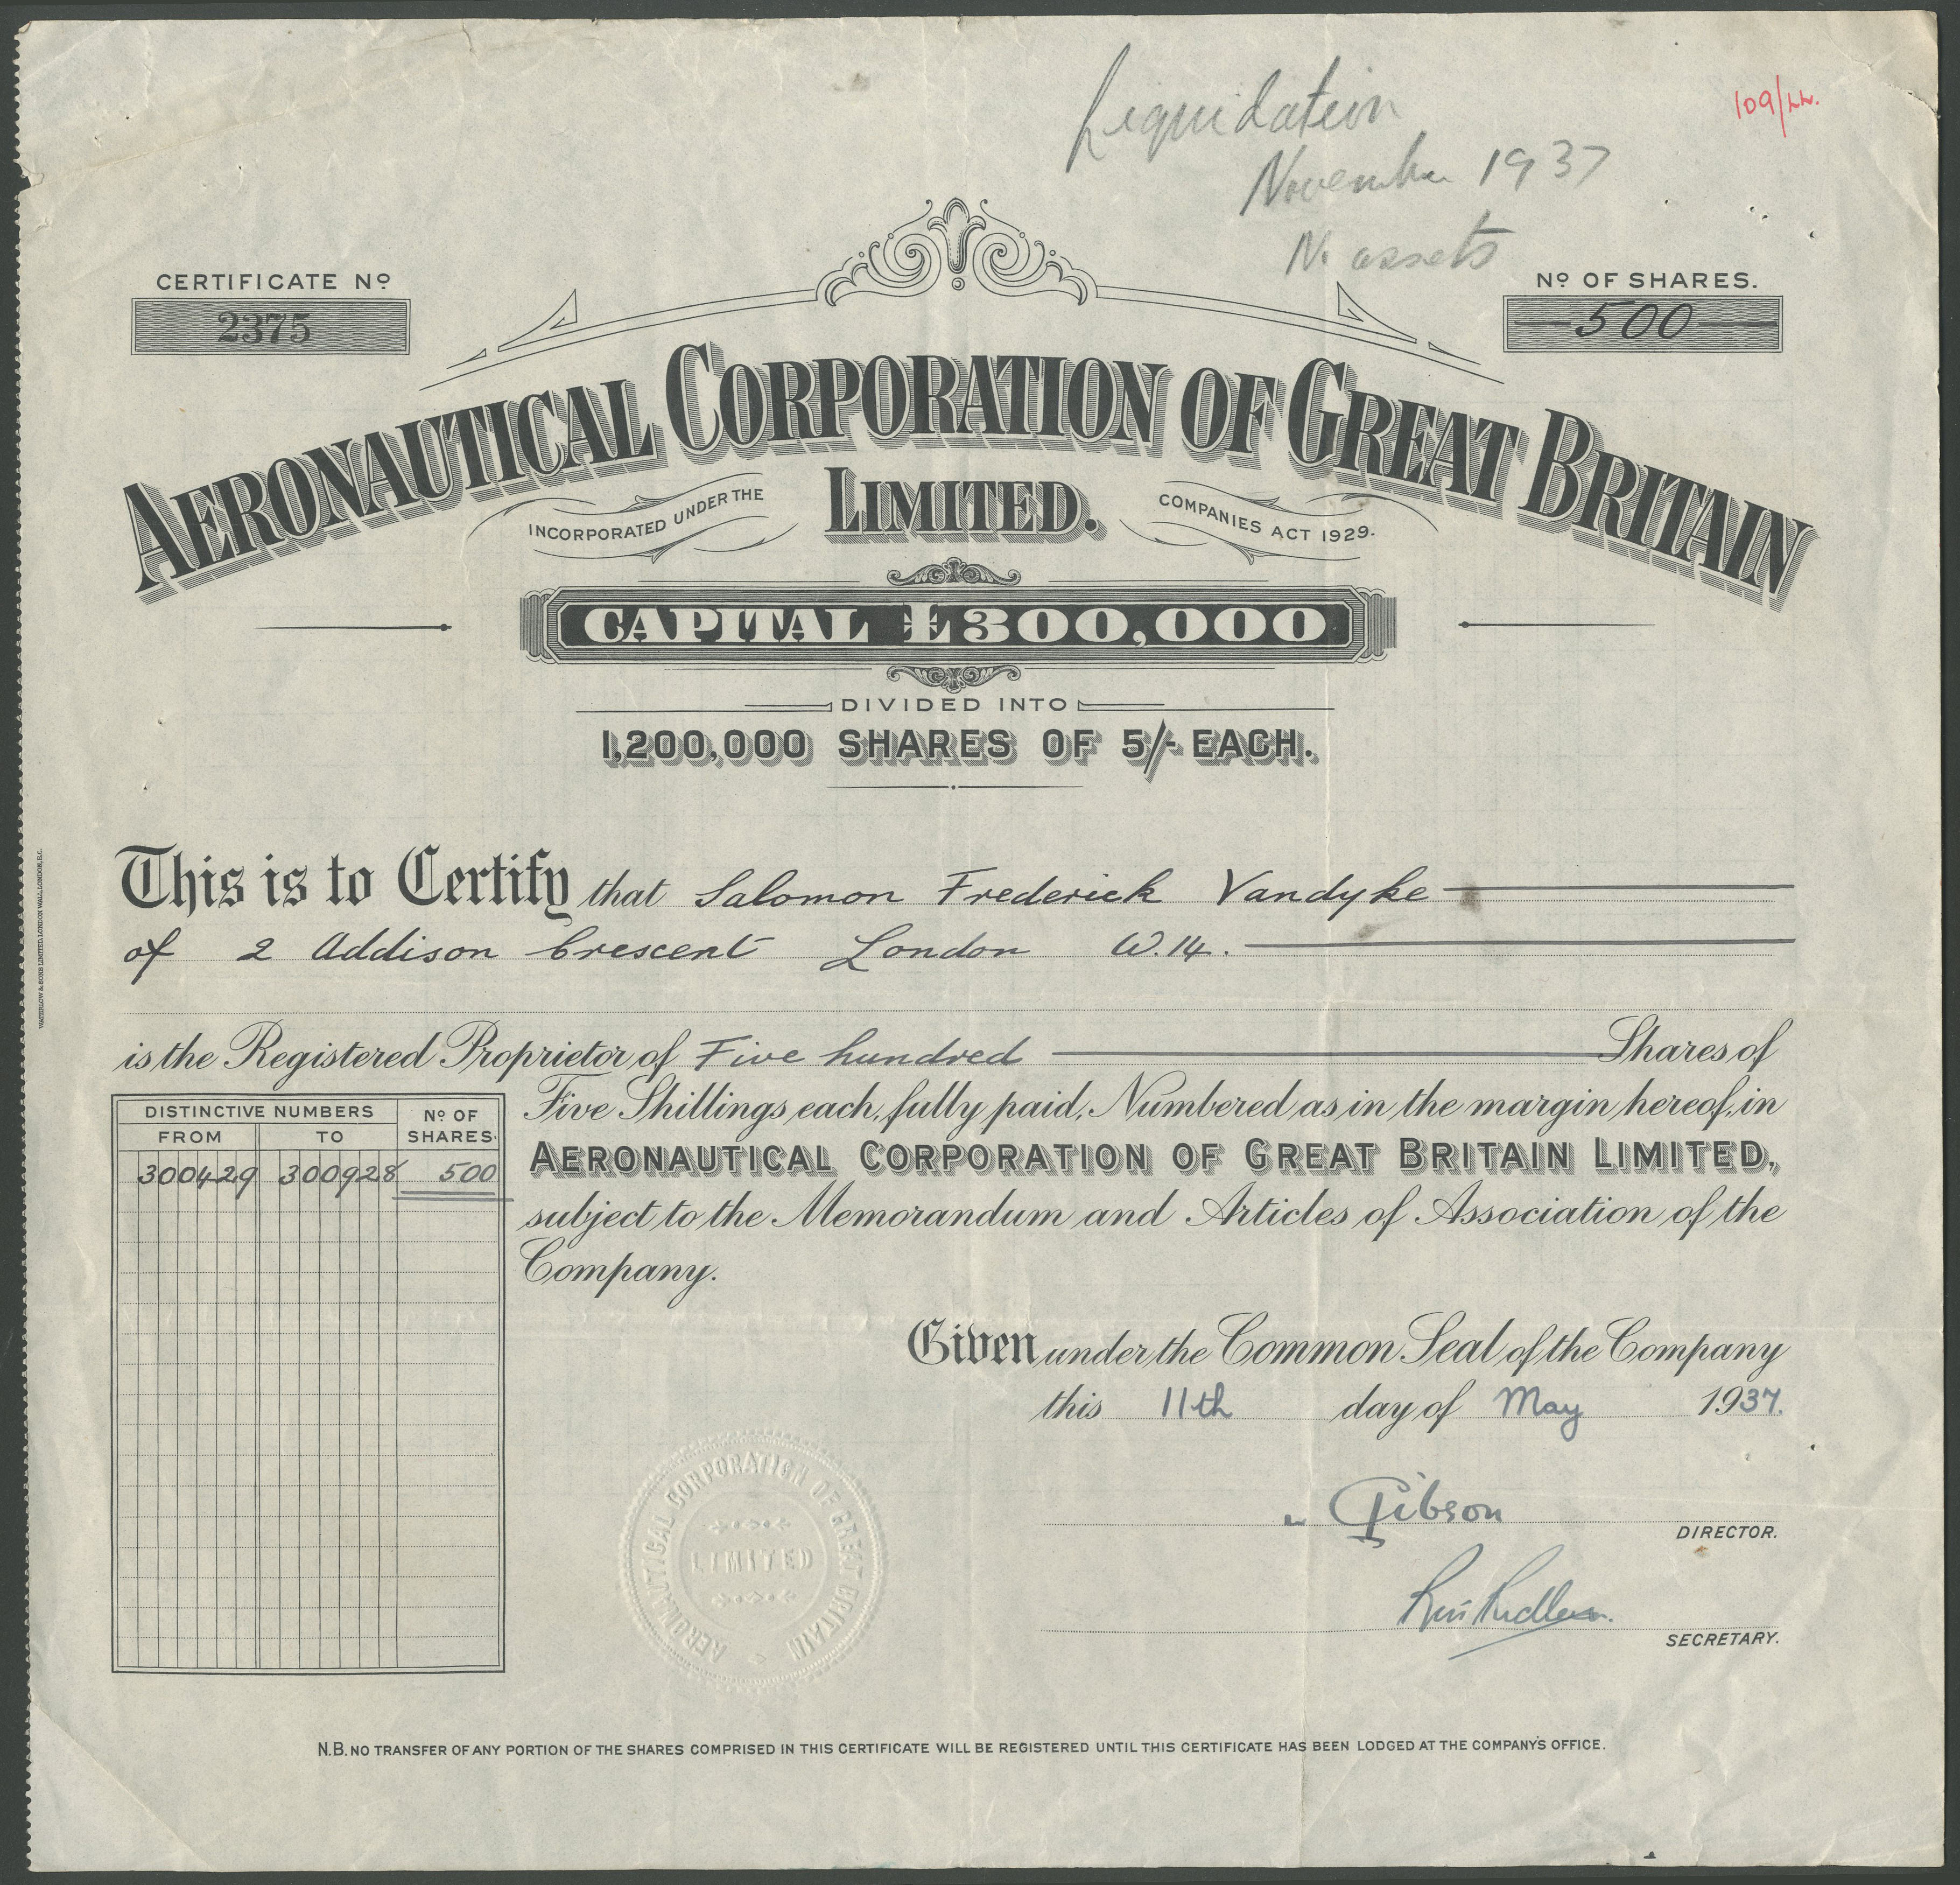 Liquidation
November 1937
No assets
109/
CERTIFICATE Nº
2375
Nº OF SHARES.
500
AERONAUTICAL CORPORATION OF GREAT BRITAIN
LIMITED.
INCORPORATED UNDER THE COMPANIES ACT 1929.
CAPITAL £300,000
DIVIDED INTO
1,200,000 SHARES OF 5/- EACH.
This is to Certify that Salomon Frederick Vandyke
of 2 Addison Crescent London W.14.
is the Registered Proprietor of Five hundred Shares of
Five Shillings each, fully paid, Numbered as in the margin hereof, in
AERONAUTICAL CORPORATION OF GREAT BRITAIN LIMITED,
subject to the Memorandum and Articles of Association of the
Company.
DISTINCTIVE NUMBERS Nº OF SHARES.
FROM TO
300429 300928 500
Given under the Common Seal of the Company
this 11th day of May 1937.
Gibson
DIRECTOR.
SECRETARY.
AERONAUTICAL CORPORATION OF GREAT BRITAIN
LIMITED
N.B. NO TRANSFER OF ANY PORTION OF THE SHARES COMPRISED IN THIS CERTIFICATE WILL BE REGISTERED UNTIL THIS CERTIFICATE HAS BEEN LODGED AT THE COMPANY'S OFFICE.
WATERLOW & SONS LIMITED, LONDON WALL, LONDON, E.C.